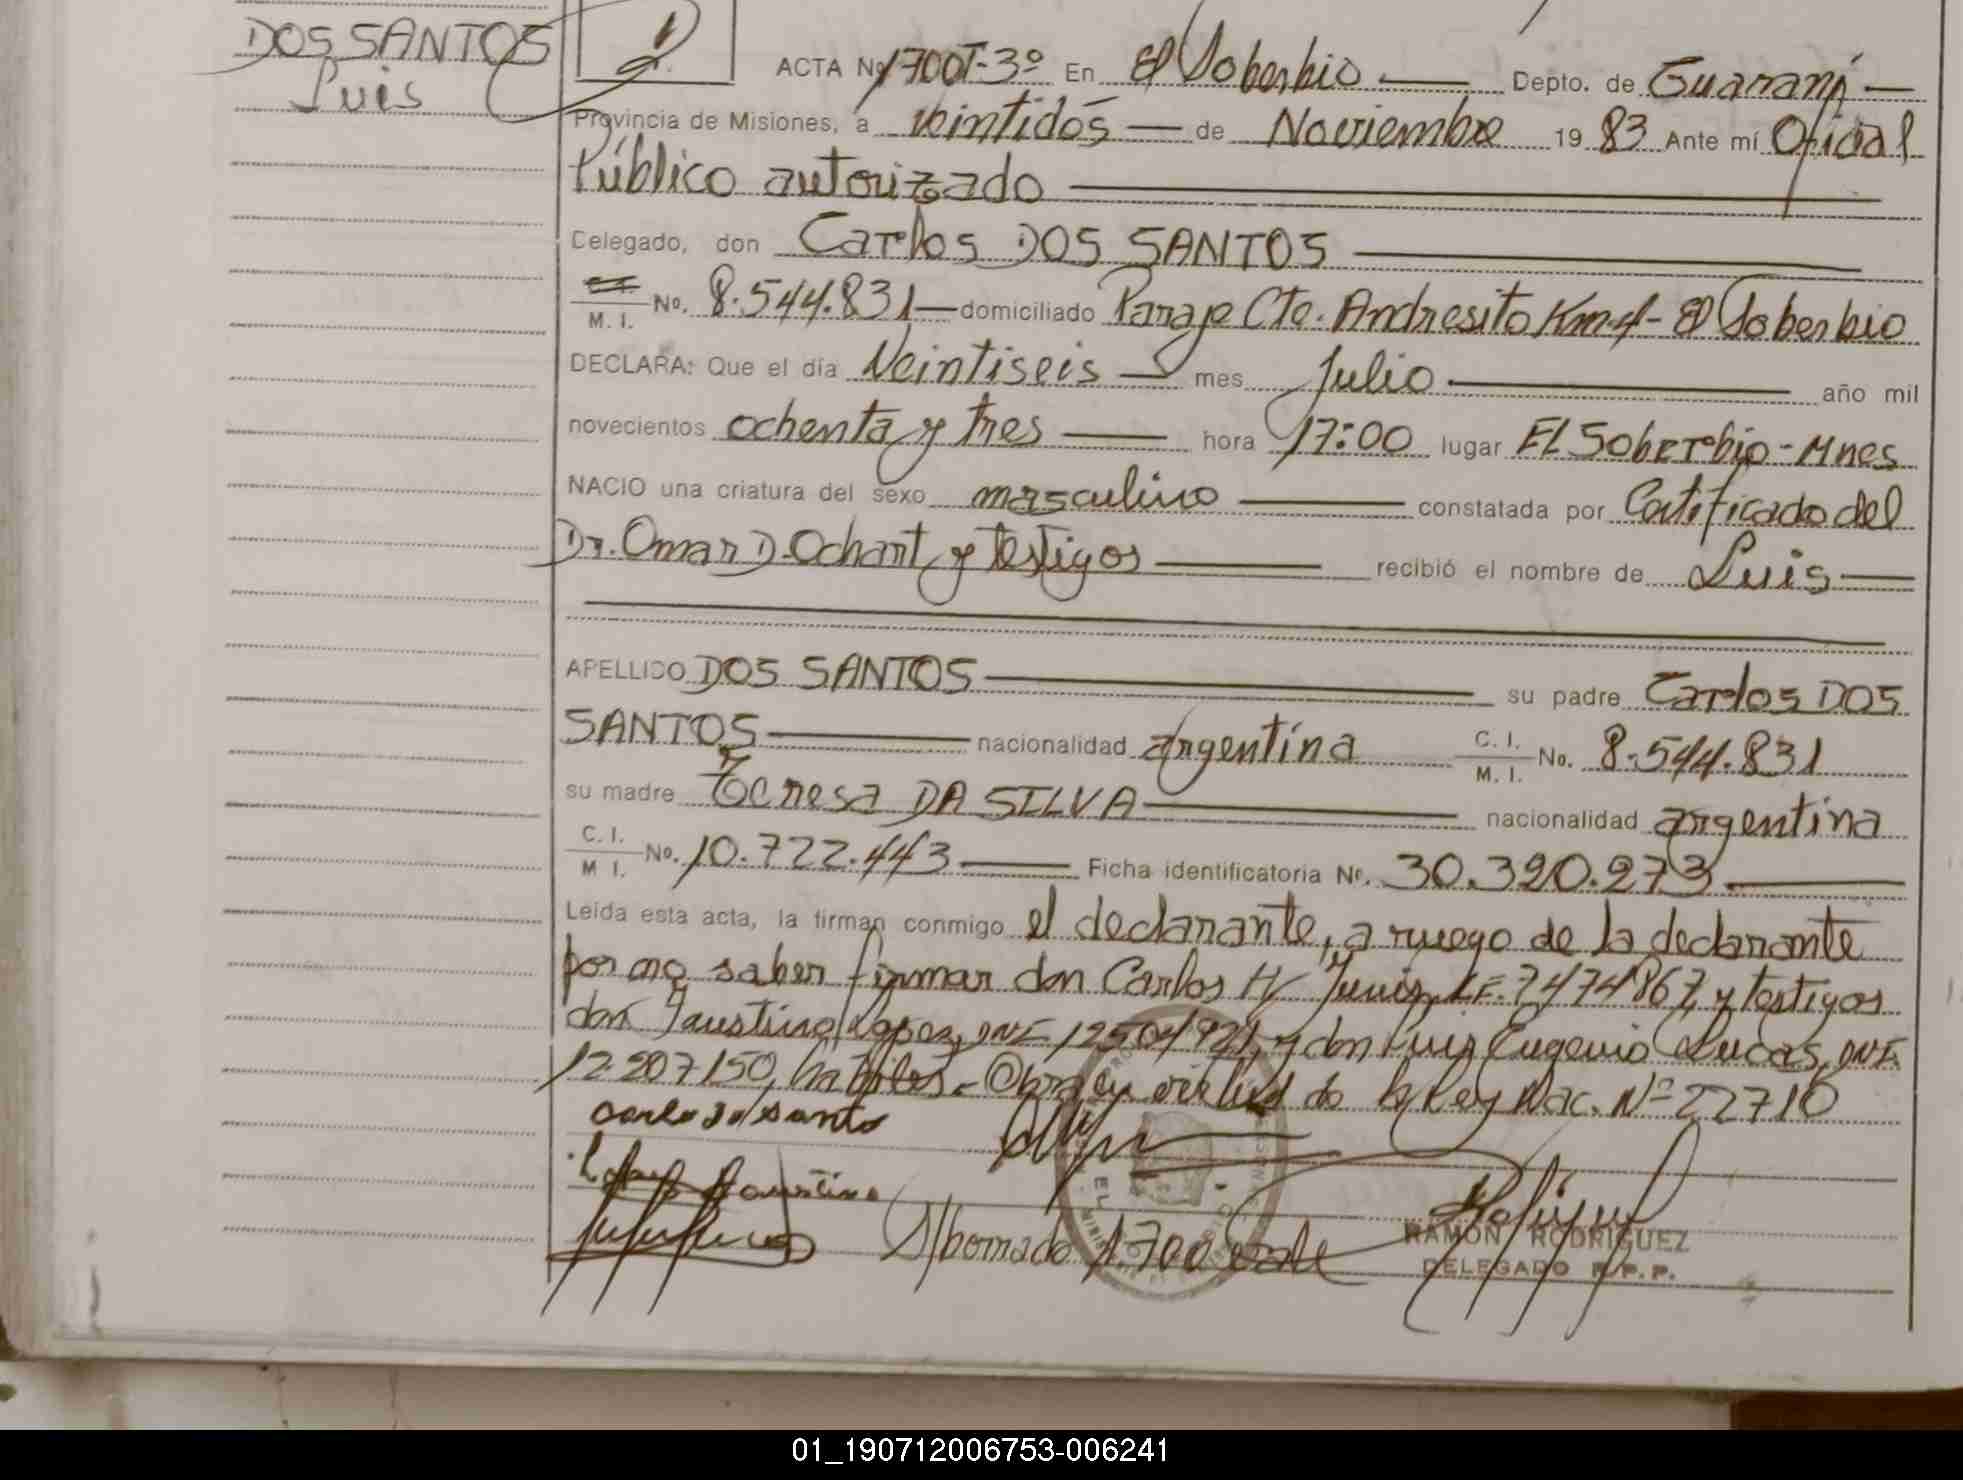 DOS SANTOS
Luis
ACTA Nº 1700T-3º En El Soberbio Depto. de Guaraní
Provincia de Misiones, a veintidós de Noviembre 19 83 Ante mí Oficial
Público autorizado
Delegado, don Carlos DOS SANTOS
M. I. No. 8.544.831 domiciliado Paraje Cte. Andresito Km.4- El Soberbio
DECLARA: Que el día Veintiseis mes Julio año mil
novecientos ochenta y tres hora 17:00 lugar EL Soberbio - Mnes
NACIO una criatura del sexo masculino constatada por Certificado del
Dr. Omar D. Ochant y testigos recibió el nombre de Luis
APELLIDO DOS SANTOS su padre Carlos DOS
SANTOS nacionalidad argentina C. I. M. I. No. 8.544.831
su madre Teresa DA SILVA nacionalidad argentina
C. I. M I. No. 10.722.443 Ficha identificatoria Nº. 30.320.273
Leída esta acta, la firman conmigo el declarante, a ruego de la declarante
por no saber firmar don Carlos H. LE. 7474867, y testigos
don Faustino Lopez, DNI 12504921, y don Luis Eugenio Lucas, DNI.
12.207150, hábiles.- Obra en virtud de la Ley Nac. Nº 22710
Carlo do santo
Faustino
1700 vale
RAMON RODRIGUEZ
DELEGADO R.P.P.
01_190712006753-006241